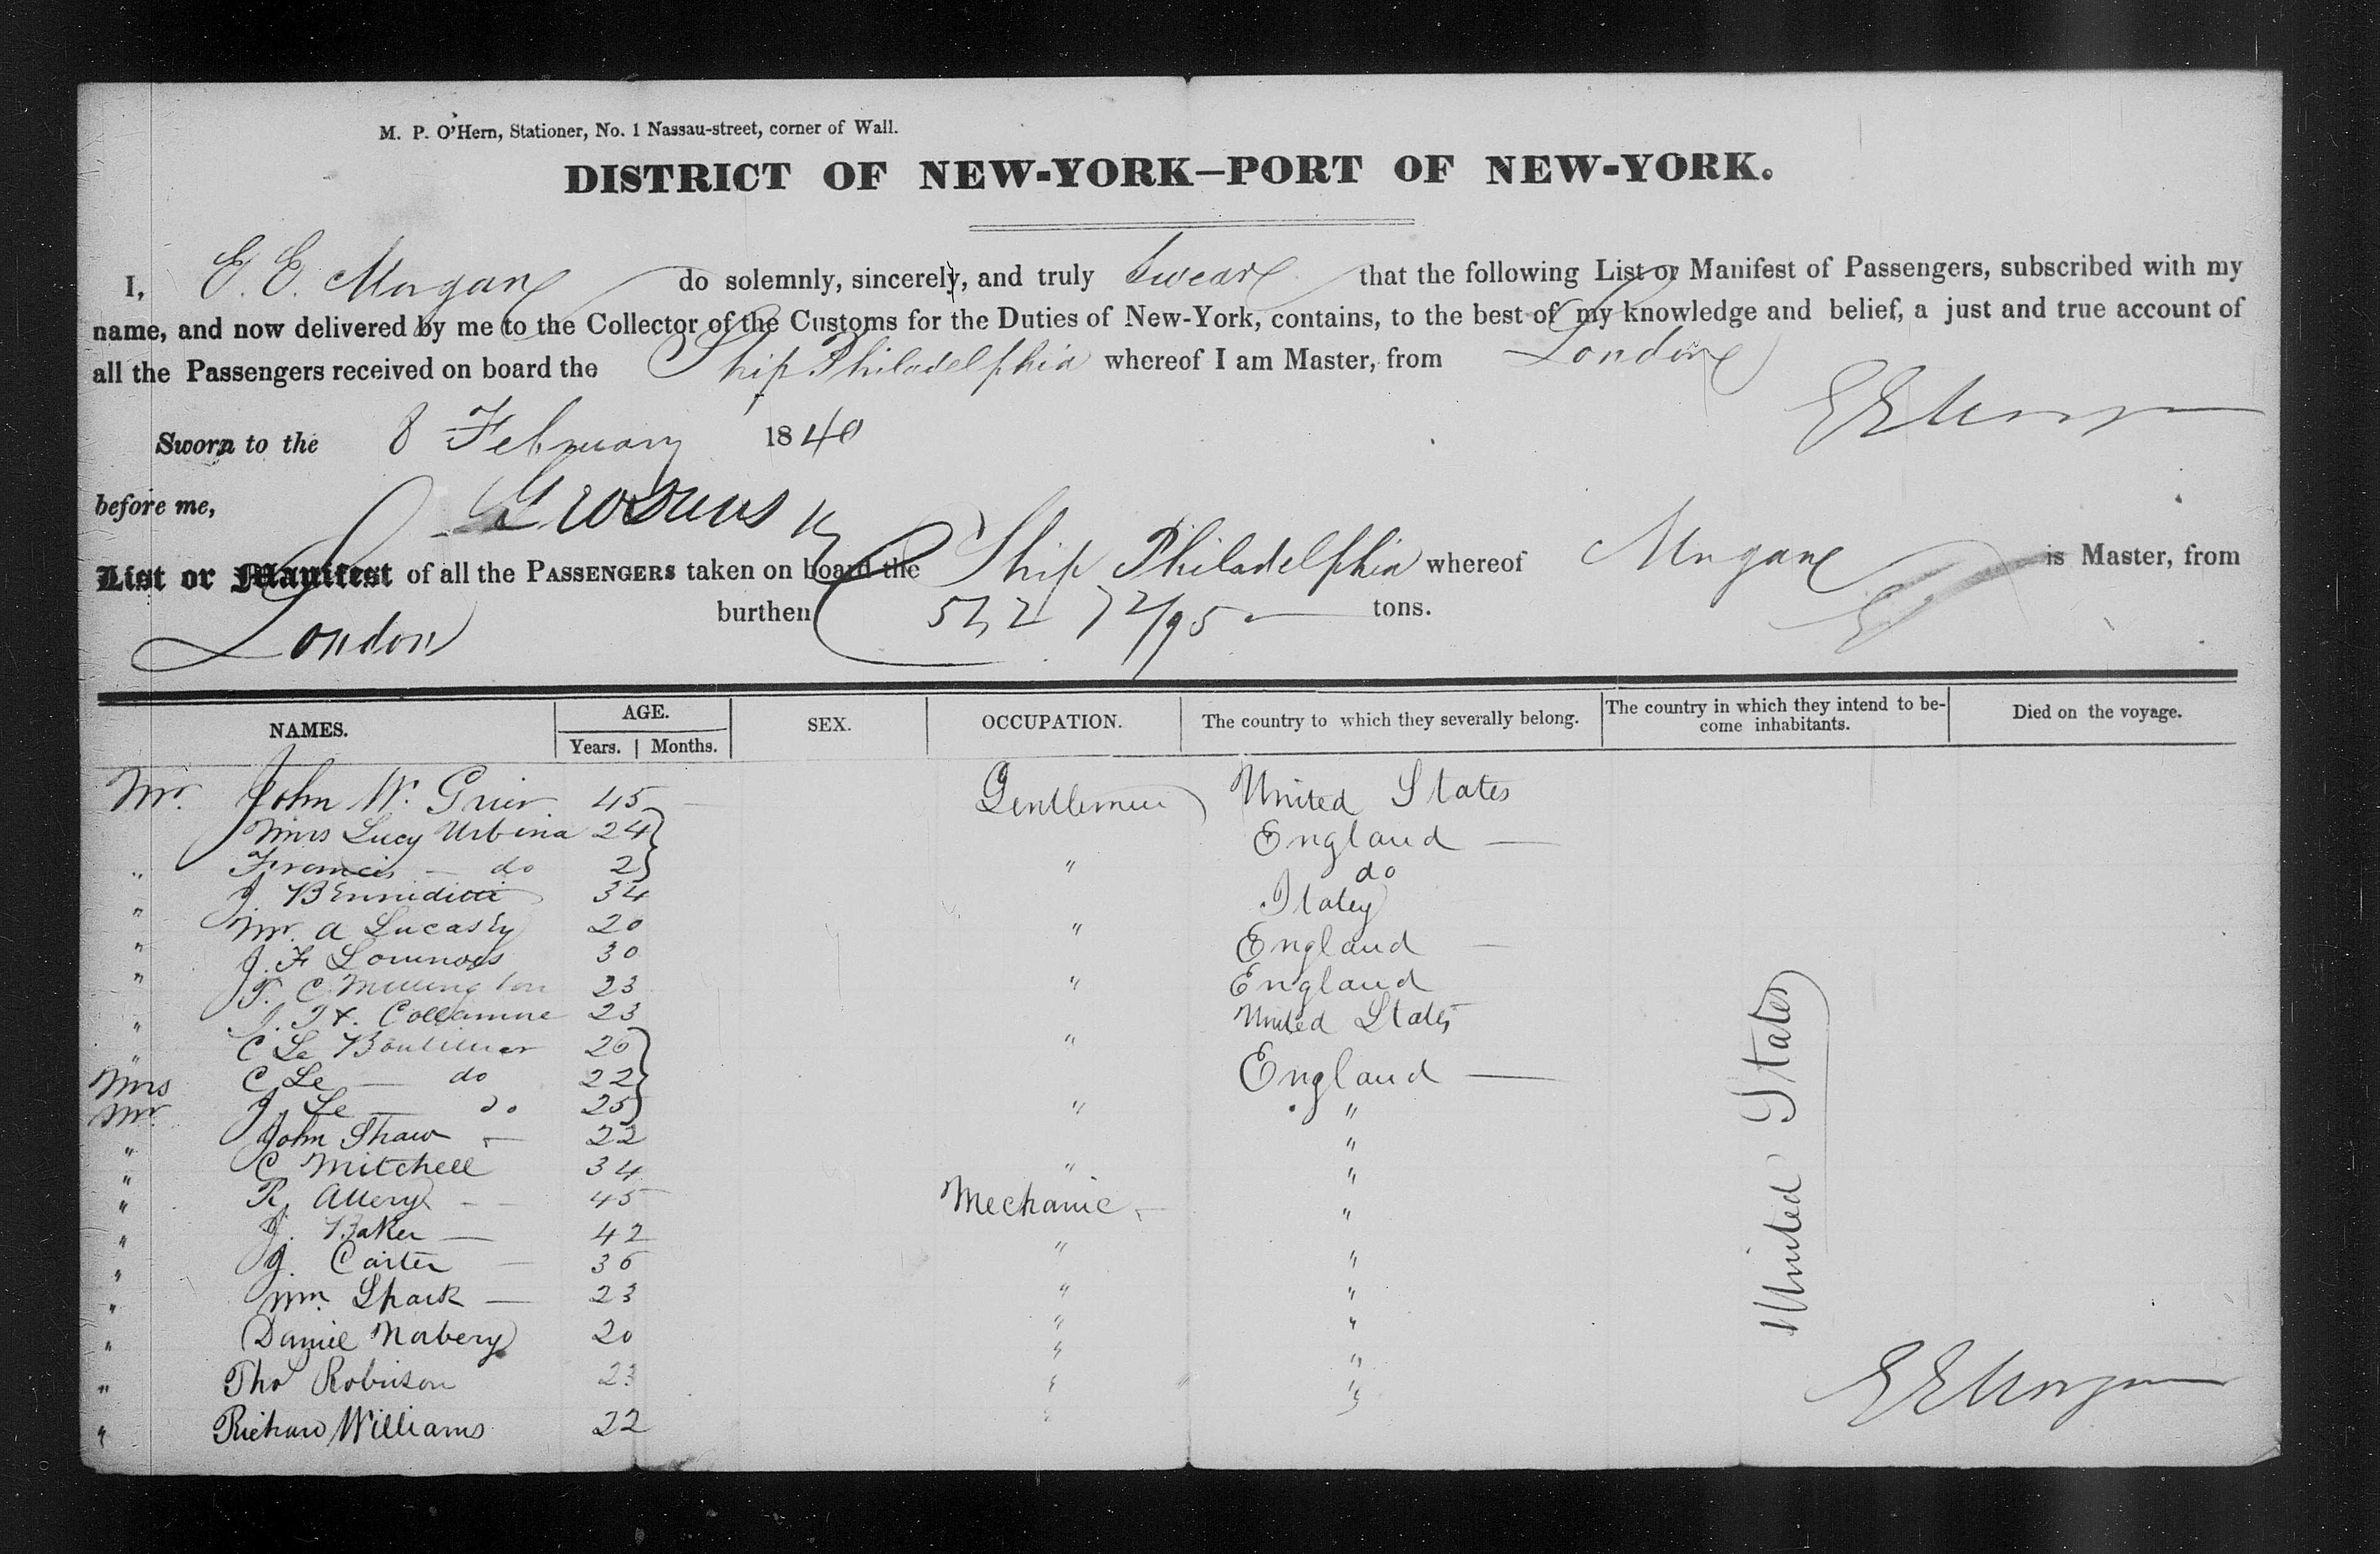 M. P. O'Hern, Stationer, No. 1 Nassau-street, corner of Wall.
DISTRICT OF NEW-YORK—PORT OF NEW-YORK.
I, E. E. Morgan do solemnly, sincerely, and truly Swear that the following List or Manifest of Passengers, subscribed with my
name, and now delivered by me to the Collector of the Customs for the Duties of New-York, contains, to the best of my knowledge and belief, a just and true account of
all the Passengers received on board the Ship Philadelphia whereof I am Master, from London
E E Morgan
Sworn to the 8 February 1840
before me,
List or Manifest of all the PASSENGERS taken on board the Ship Philadelphia whereof Morgan is Master, from
London burthen 542 72/95 tons.
NAMES. AGE. SEX. OCCUPATION. The country to which they severally belong. The country in which they intend to be- Died on the voyage.
Years. Months. come inhabitants.
Mr. John W. Grier 45 Gentlemen United States
Mrs Lucy Urbina 24 England —
" Francis — do 2 " do
" J. 34 Italey
" Mr. A 20 " England —
" J. F 30
" T. C. Millington 23 " England
" Collamore 23 United States
" C Le 26 "
Mrs C Le — do 22 England —
Mr J. Le — do 25 " "
" John Shaw — 22 "
" C Mitchell 34 " "
" R 45 Mechanic — "
" J. Baker — 42 "
" J. Carter — 36 " "
" Wm. Shark — 23 " "
" Daniel Norbery 20 " "
" Thos Robinson 23 " "
" Richard Williams 22 " "
United States
E E Morgan